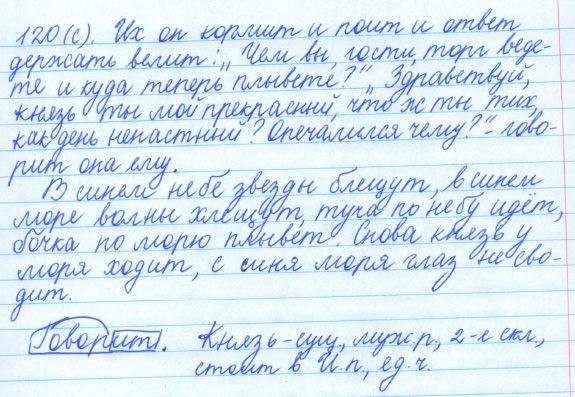 120(с). Их он кормит и поит и ответ
держать велит: „Чем вы, гости, торг веде-
те и куда теперь плывете?“ „Здравствуй,
князь ты мой прекрасний, что ж ты тих,
как день непастний? Опечалился чему?“ - гово-
рит она ему.
В синем небе звезды блещут, в синем
море волны хлещут, туча по небу идёт,
бочка по морю плывёт. Снова князь у
моря ходит, с синя моря глаз не сво-
дит.
Говорит. Князь-сущ, муж.р, 2-е скл.,
стоит в И.п., ед.ч.